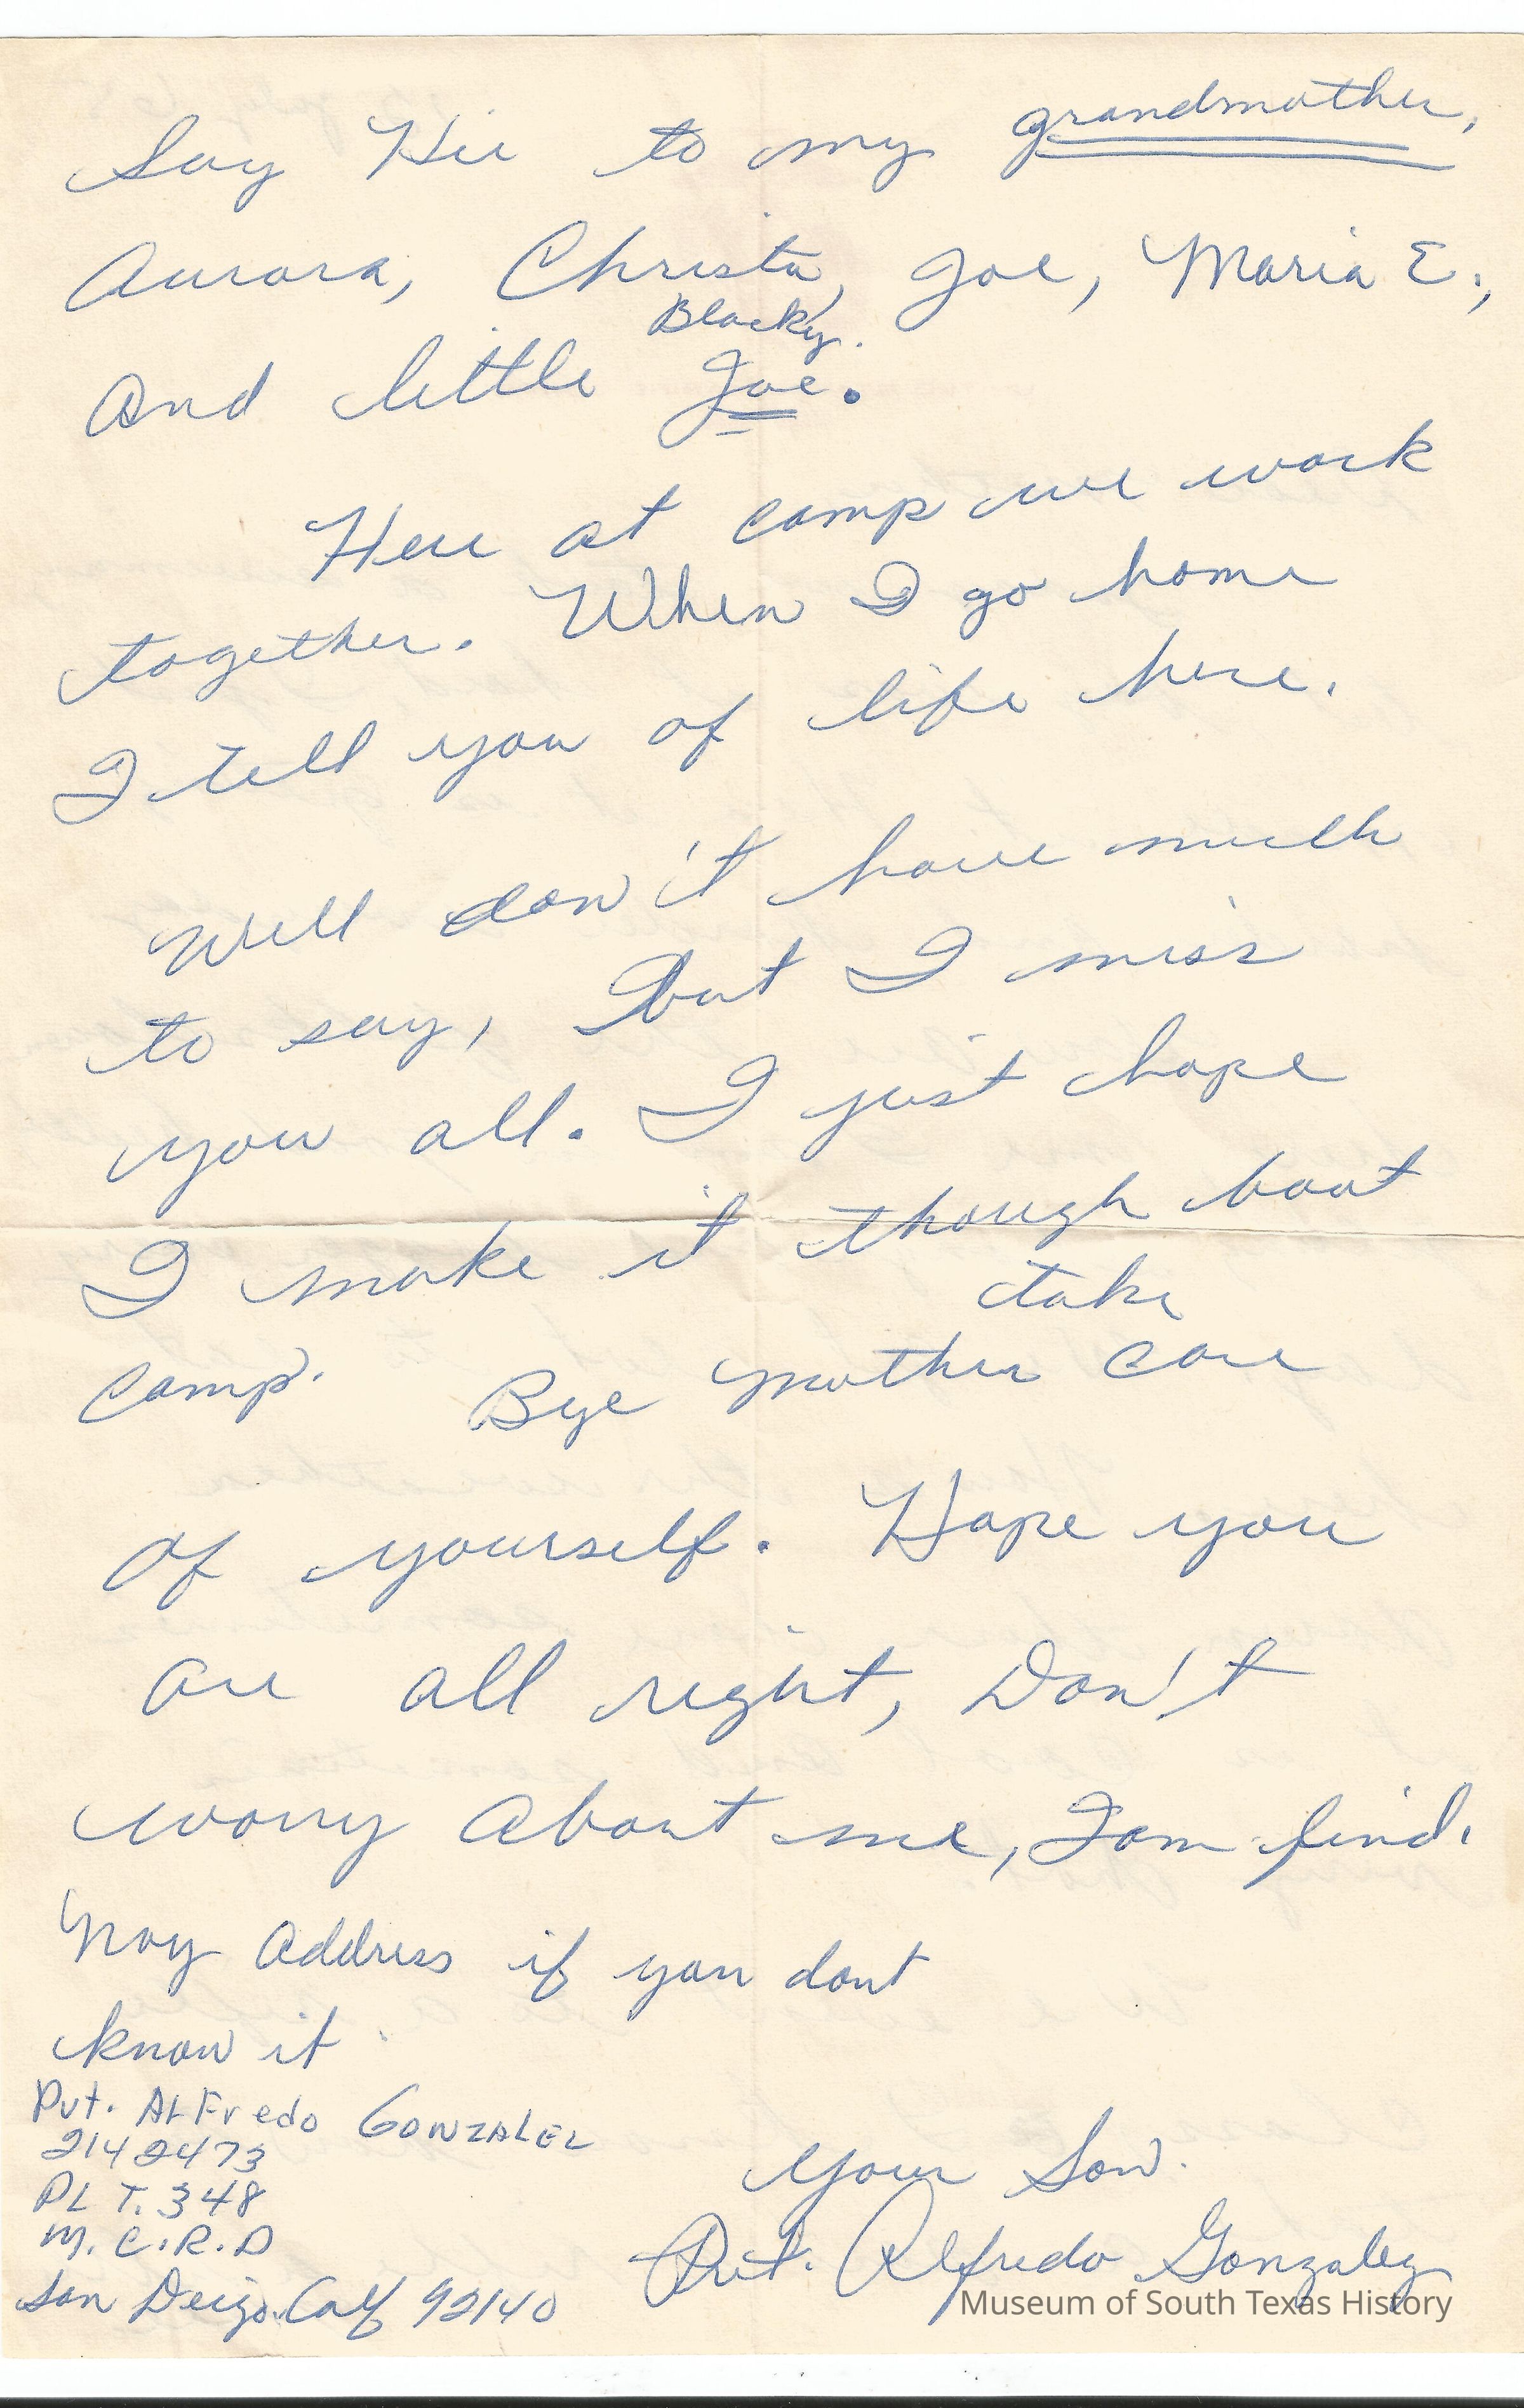 Say Hii to my grandmother,
Aurora, Christa, Joe, Maria E.,
Blacky.
And little Joe.
Here at camp we work
together. When I go home
I tell you of life here.
Well don't have much
to say, But I miss
you all. I just hope
I make it though boot
take
camp. Bye mother care
of yourself. Hope you
are all right, Don't
worry About me, I am find.
My Address if you dont
know it
Pvt. ALFredo GONZALEZ
2142473
PLT. 348
M.C.R.D
San Deigo, Calf 92140
Your Son.
Pvt. Alfredo Gonzalez
Museum of South Texas History